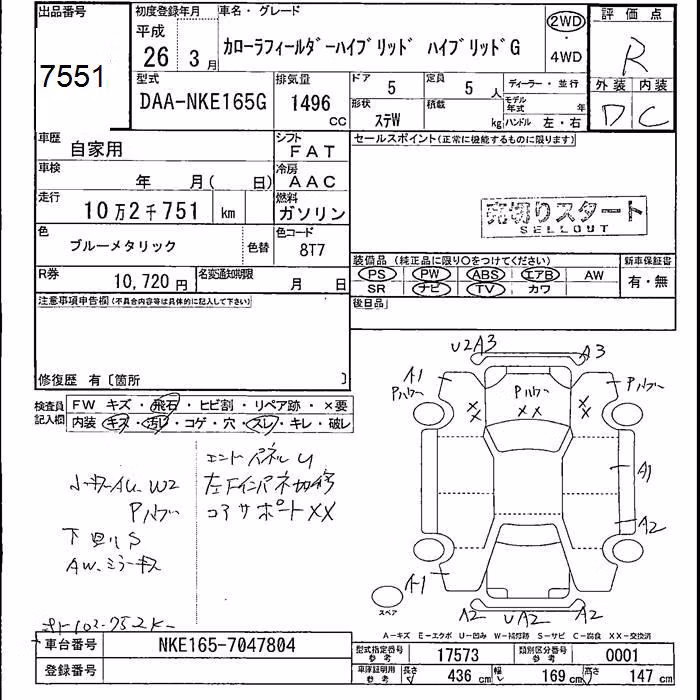 出品番号 初度登録年月 車名・グレード 評価点
7551 平成 26 3月 カローラフィールダーハイブリッド ハイブリッドG 2WD・4WD R
型式 排気量 ドア 定員 ディーラー・並行 外装 内装
DAA-NKE165G 1496 CC 5 5人 モデル年式 年 D C
形状 ステW 積載 kg ハンドル 左・右
車歴 自家用 シフト FAT セールスポイント(正常に機能するものに限ります)
車検 年 月( 日) 冷房 AAC
走行 10万2千751 km 燃料 ガソリン
売切りスタート
SELLOUT
色 ブルーメタリック 色替 色コード 8T7
装備品 (純正品に限り○をつけてください) 新車保証書
PS PW ABS エアB AW 有・無
SR ナビ TV カワ
R券 10,720円 名変通知期限 月 日
注意事項申告欄(不具合内容等は具体的に記入して下さい) 後日品
修復歴 有〔箇所 〕
検査員記入欄 FW キズ・飛石・ヒビ割・リペア跡・×要
内装 キズ・汚レ・コゲ・穴・スレ・キレ・破レ
U2 A3 A3
A1 Pハゲー Pハゲー Pハゲー
XX XX XX
エンドパネルU
W2 左下インパネ
コアサポートXX
下回りS
AW、ミラーキズ
A1
A2
A1
A2 UA2 A2
スペア
A-キズ E-エクボ U-凹み W-補修跡 S-サビ C-腐食 XX-交換済
車台番号 NKE165-7047804 型式指定番号 参考 17573 類別区分番号 参考 0001
登録番号 車庫証明用 参考 長さ 436 cm 幅 169 cm 高さ 147 cm